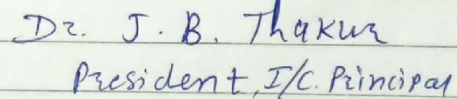 Dr. J. B. Thakur
President, I/C. Principal